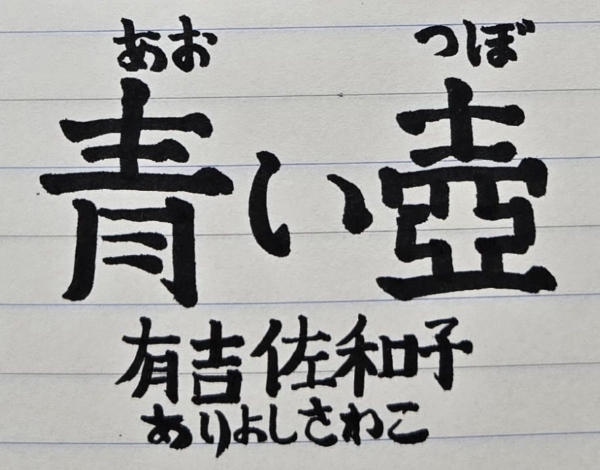 あお つぼ
青い壺
有吉佐和子
ありよしさわこ